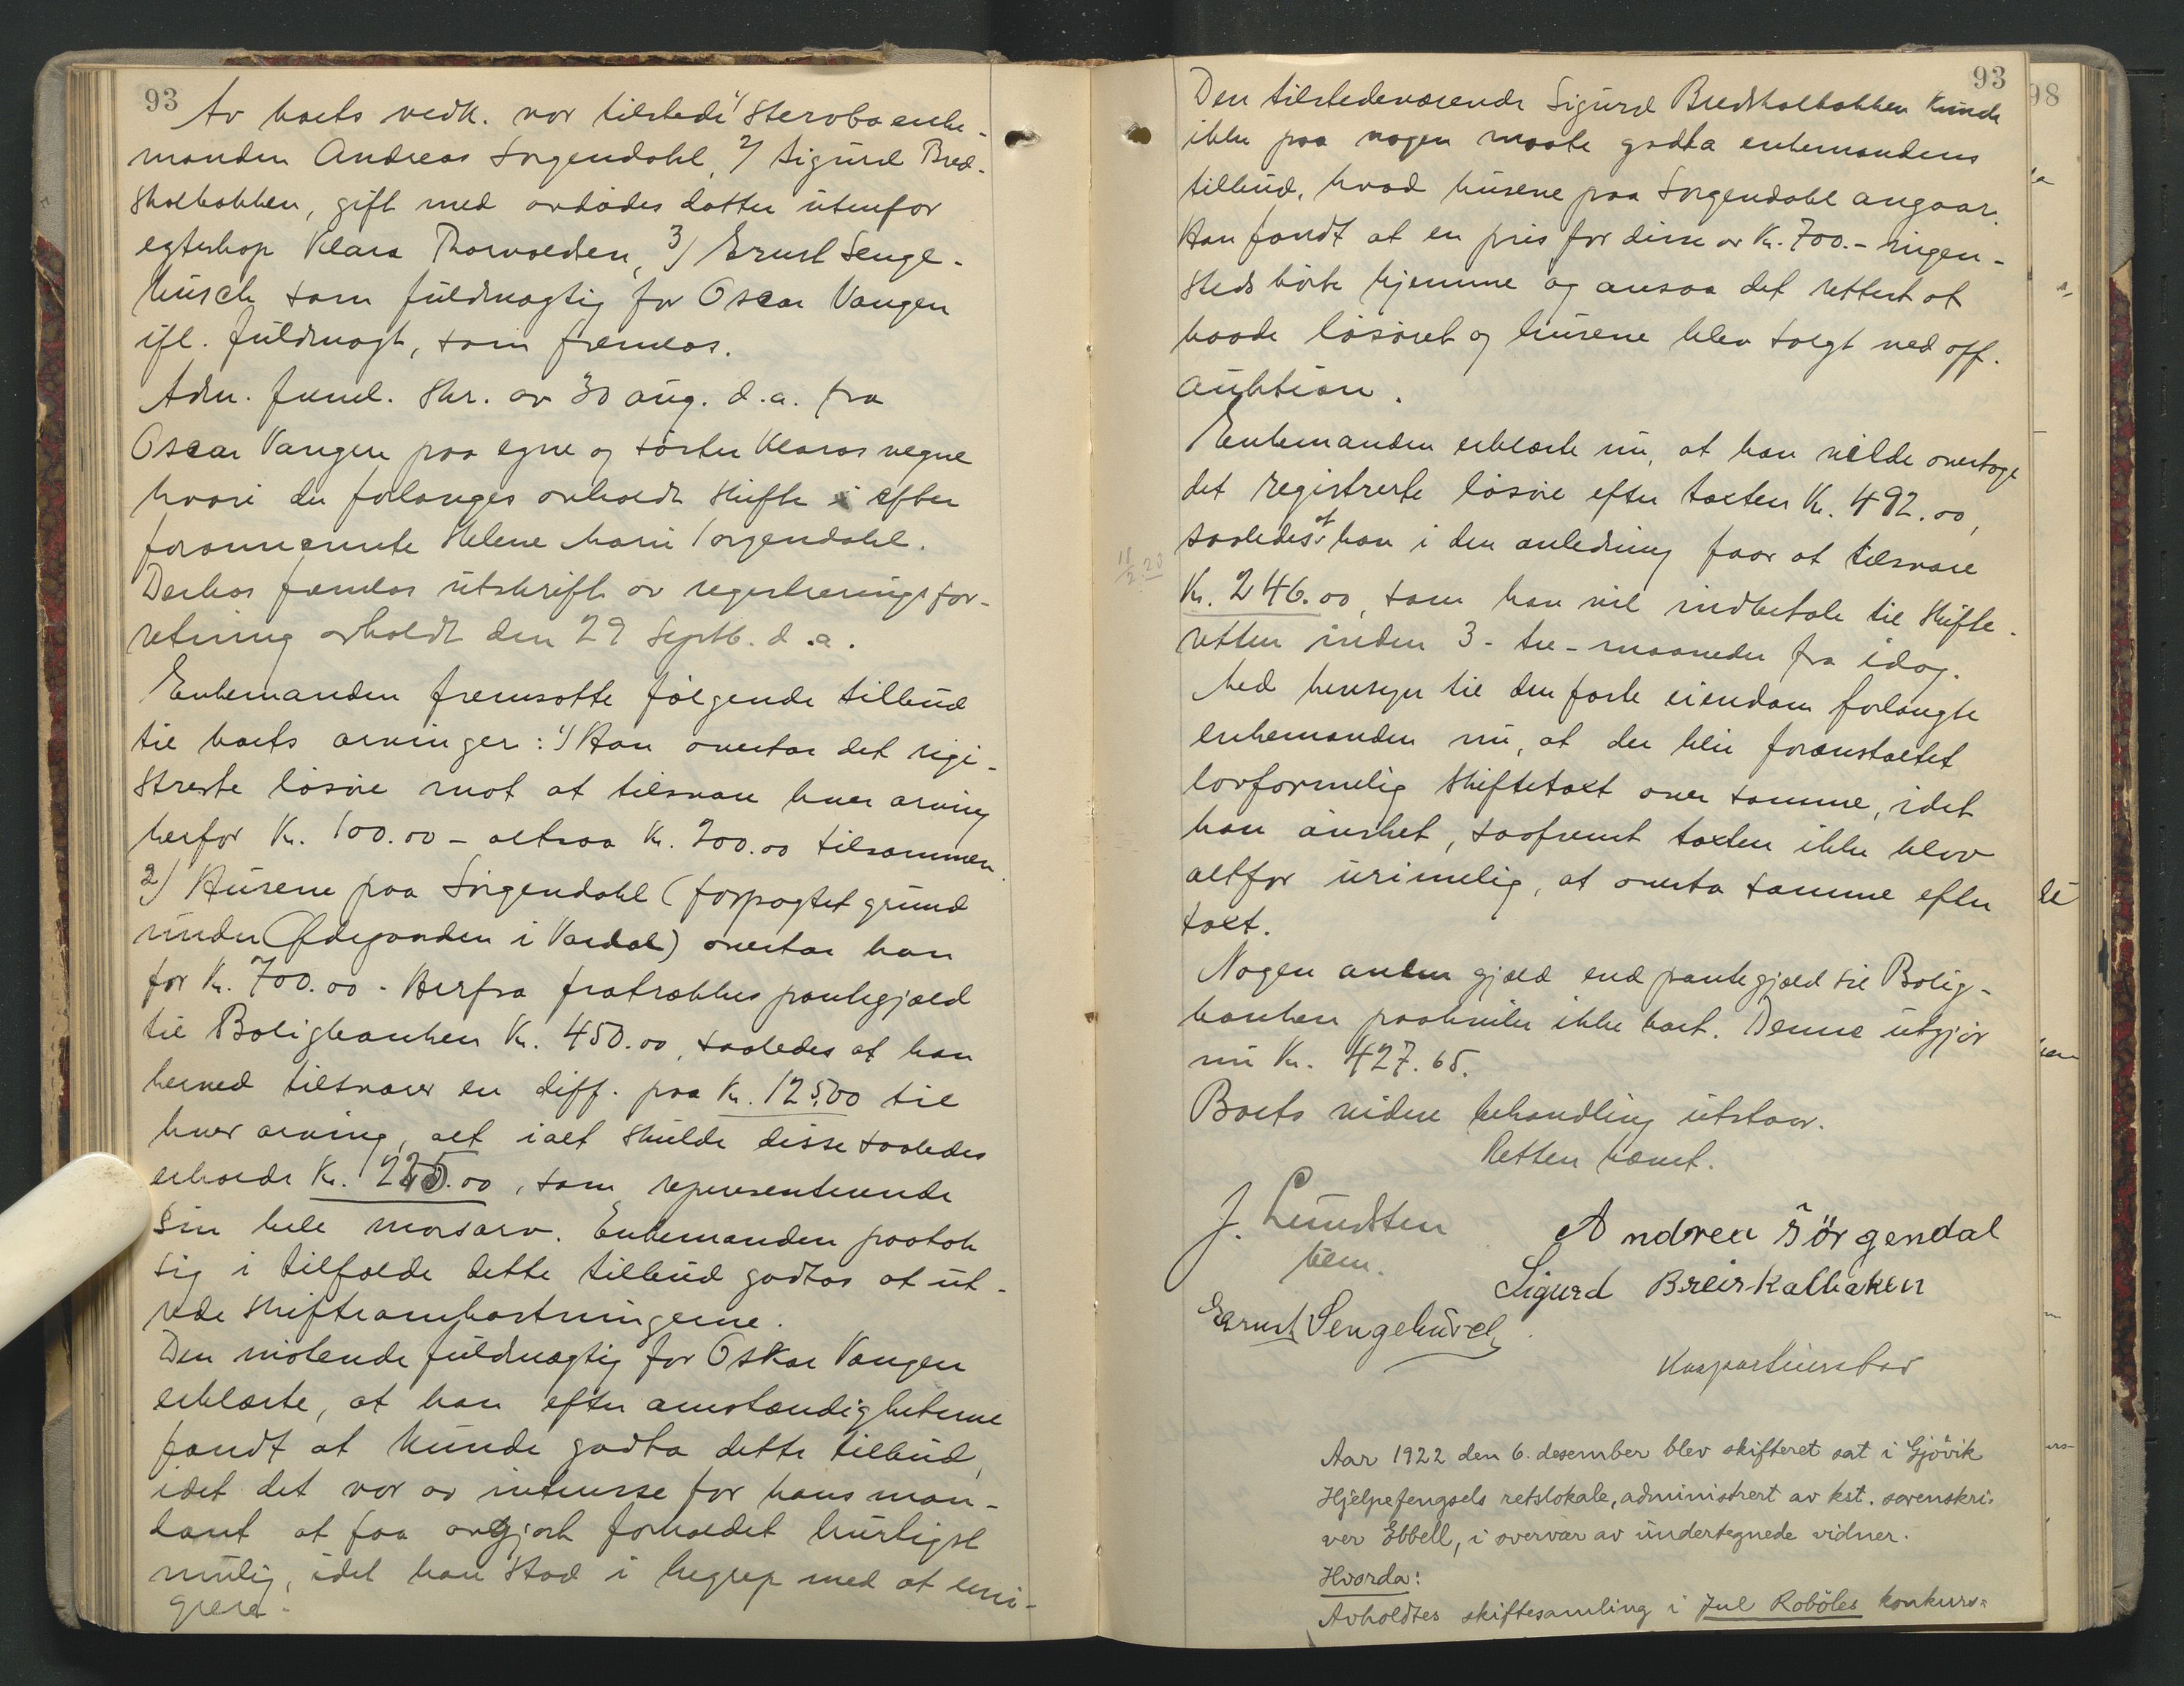 93
Av boets vedk. var tilstede 1/ Stervboenke-
manden Andreas Sörgendahl, 2/ Sigurd Bred-
skalbakken, gift med avdödes datter utenfor
egteskap Klara Thorvaldsen, 3/ Ernst Senge-
busch som fuldmægtig for Oscar Vangen
ifl. fuldmagt, som fremlas.
Adm. freml. skr. av 30 aug. d.a. fra
Oscar Vangen paa egne og söster Klaras vegne
hvori der forlanges avholdt skifte i efter
forannævnte Helene Marie Sörgendahl.
Derhos fremlas utskrift av registreringsfor-
retning avholdt den 29 Septb. d.a.
Enkemanden fremsatte følgende tilbud
til boets arvinger: 1/ Han overtar det regi-
strerte løsøre mot at tilsvare hver arving
herfor Kr. 100.00 - altsaa Kr. 200.00 tilsammen.
2/ Husene paa Sörgendahl (forpagtet grund
under Ødegaarden i Vardal) overtar han
for Kr. 700.00 - Herfra fratrækkes pantegjæld
til Boligbanken Kr. 450.00, saaledes at han
herved tilsvarer en diff. paa Kr. 125.00 til
hver arving, alt ialt skulde disse saaledes
erholde Kr. 225.00, som representerende
sin hele morsarv. Enkemanden paatok
sig i tilfælde dette tilbud godtas at ut-
rede skifteomkostningerne.
Den møtende fuldmægtig for Oskar Vangen
erklærte, at han efter omstændigheterne
fandt at kunde godta dette tilbud,
idet det var av interesse for hans man-
dant at faa avgjort forholdet hurtigst
mulig, idet han stod i begrep med at emi-
grere.
93
98
Den tilstedeværende Sigurd Bredskalbakken kunde
ikke paa nogen maate godta enkemandens
tilbud, hvad husene paa Sörgendahl angaar.
Han fandt at en pris for disse av Kr. 700.- ingen-
steds hörte hjemme og ansaa det rettest at
baade løsøret og husene blev solgt ved off.
auktion.
Enkemanden erklærte nu, at han vilde overtage
det registrerte løsøre efter taxten Kr. 492.00,
saaledes at han i den anledning faar at tilsvare
Kr. 246.00, som han vil indbetale til skifte-
retten inden 3- tre- maaneder fra idag.
Med hensyn til den faste eiendom forlangte
enkemanden nu, at der blir foranstaltet
lovformelig skiftetaxt over samme, idet
han ønsket, saafremt taxten ikke blev
altfor urimelig, at overta samme efter
taxt.
Nogen anden gjæld end pantegjæld til Bolig-
banken paahviler ikke boet. Denne utgjör
nu Kr. 427.65.
Boets videre behandling utstaar.
Retten hævet.
J. Lundsten
Andrea Sörgendal
Sigurd Breiskalbaken
Ernst Sengebusch
Aar 1922 den 6. desember blev skifteret sat i Gjövik
Hjelpefengsels retslokale, administrert av kst. sorenskri-
ver Ebbell, i overvær av undertegnede vidner.
Hvorda:
Avholdtes skiftesamling i Jul Roböles konkurs=